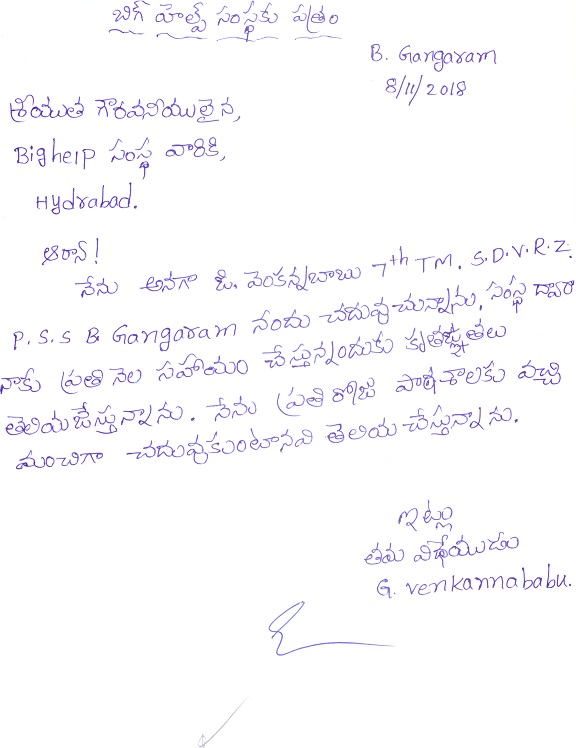 బిగ్ హెల్ప్ సంస్థకు పత్రం
B. Gangaram
8/11/2018
శ్రీయుత గౌరవనీయులైన,
Bighelp సంస్థ వారికి,
Hydrabad.
ఆర్యా!
నేను అనగా జి. వెంకన్నబాబు 7th TM. S.D.V.R.Z.
P.S.S B Gangaram నందు చదువుచున్నాను. సంస్థ ద్వారా
నాకు ప్రతి నెల సహాయం చేస్తున్నందుకు కృతజ్ఞతలు
తెలియజేస్తున్నాను. నేను ప్రతి రోజు పాఠశాలకు వచ్చి
మంచిగా చదువుకుంటానని తెలియచేస్తున్నాను.
ఇట్లు
తమ విధేయుడు
G. venkannababu.